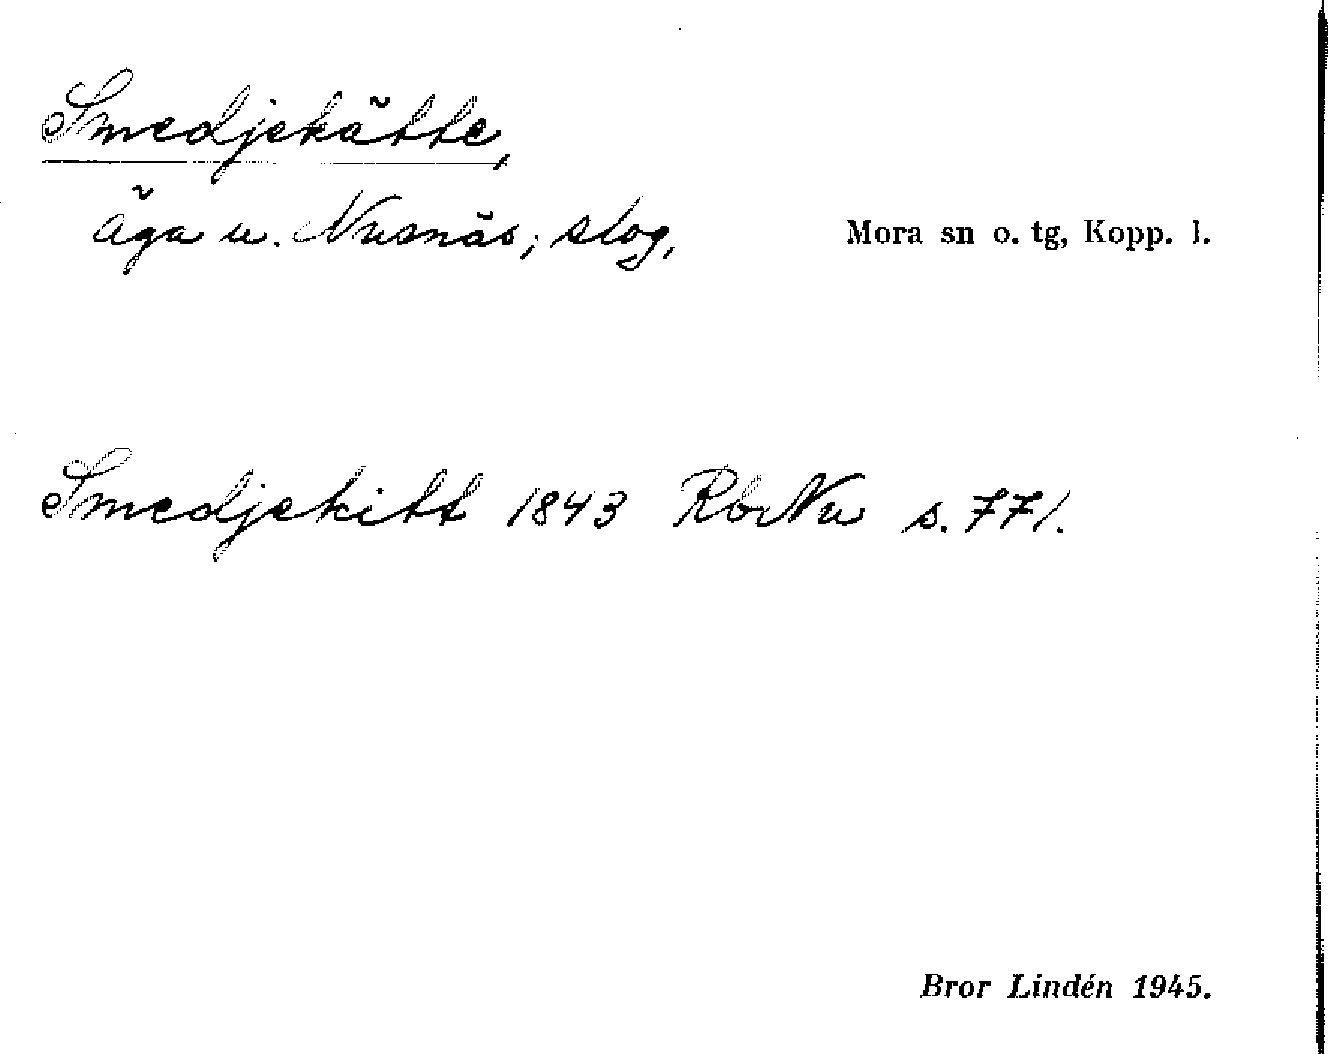 Smedjekätte,
äga u. Nusnäs; slog,
Mora sn o. tg, Kopp. l.
Smedjekitt 1843 RbNu s. 771.
Bror Lindén 1945.